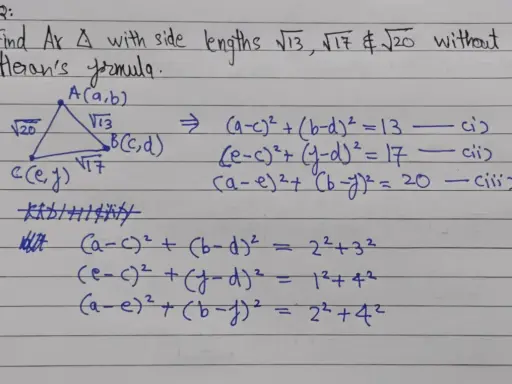 Q:
Find Ar Δ with side lengths √13, √17 & √20 without
Heron's formula.
A(a,b)
√20 √13
B(c,d)
√17
C(e,f)
⇒ (a-c)² + (b-d)² = 13 — (i)
(e-c)² + (f-d)² = 17 — (ii)
(a-e)² + (b-f)² = 20 — (iii)
(a-c)² + (b-d)² = 2²+3²
(e-c)² + (f-d)² = 1²+4²
(a-e)² + (b-f)² = 2²+4²